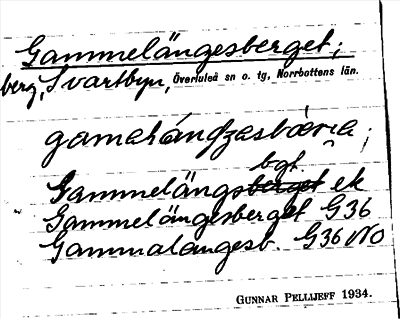 Gammelängesberget;
berg, Svartbyn, Överluleå sn o. tg, Norrbottens län.
bgt
Gammelängsberget ek
Gammelängesberget G36
Gammalängesb. G36 NO
GUNNAR PELLIJEFF 1934.